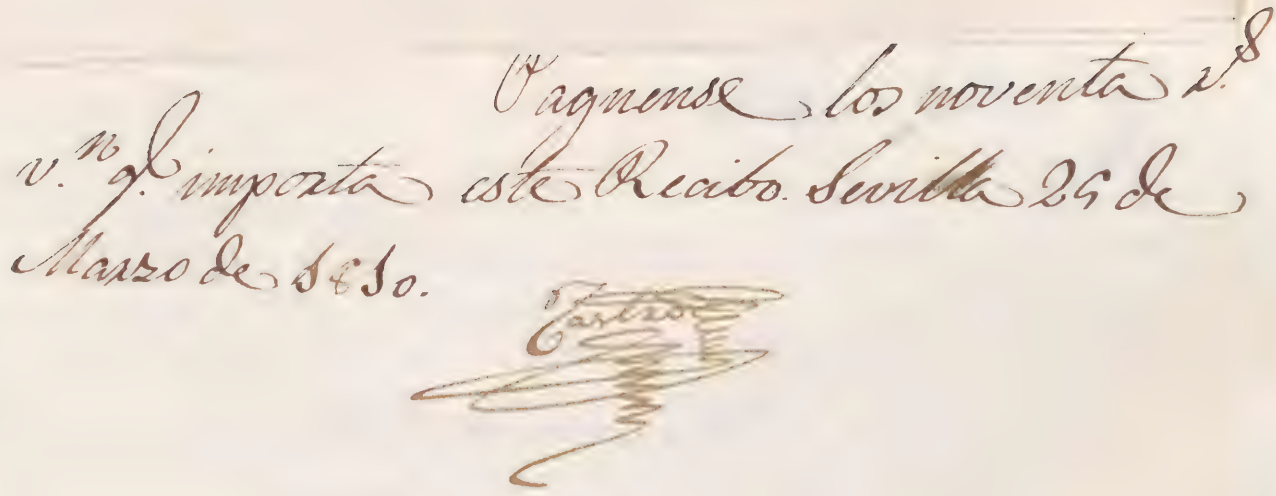 Paguense los noventa r.s
v.n q.e importa este Recibo. Sevilla 25 de
Marzo de 1810.
Castro